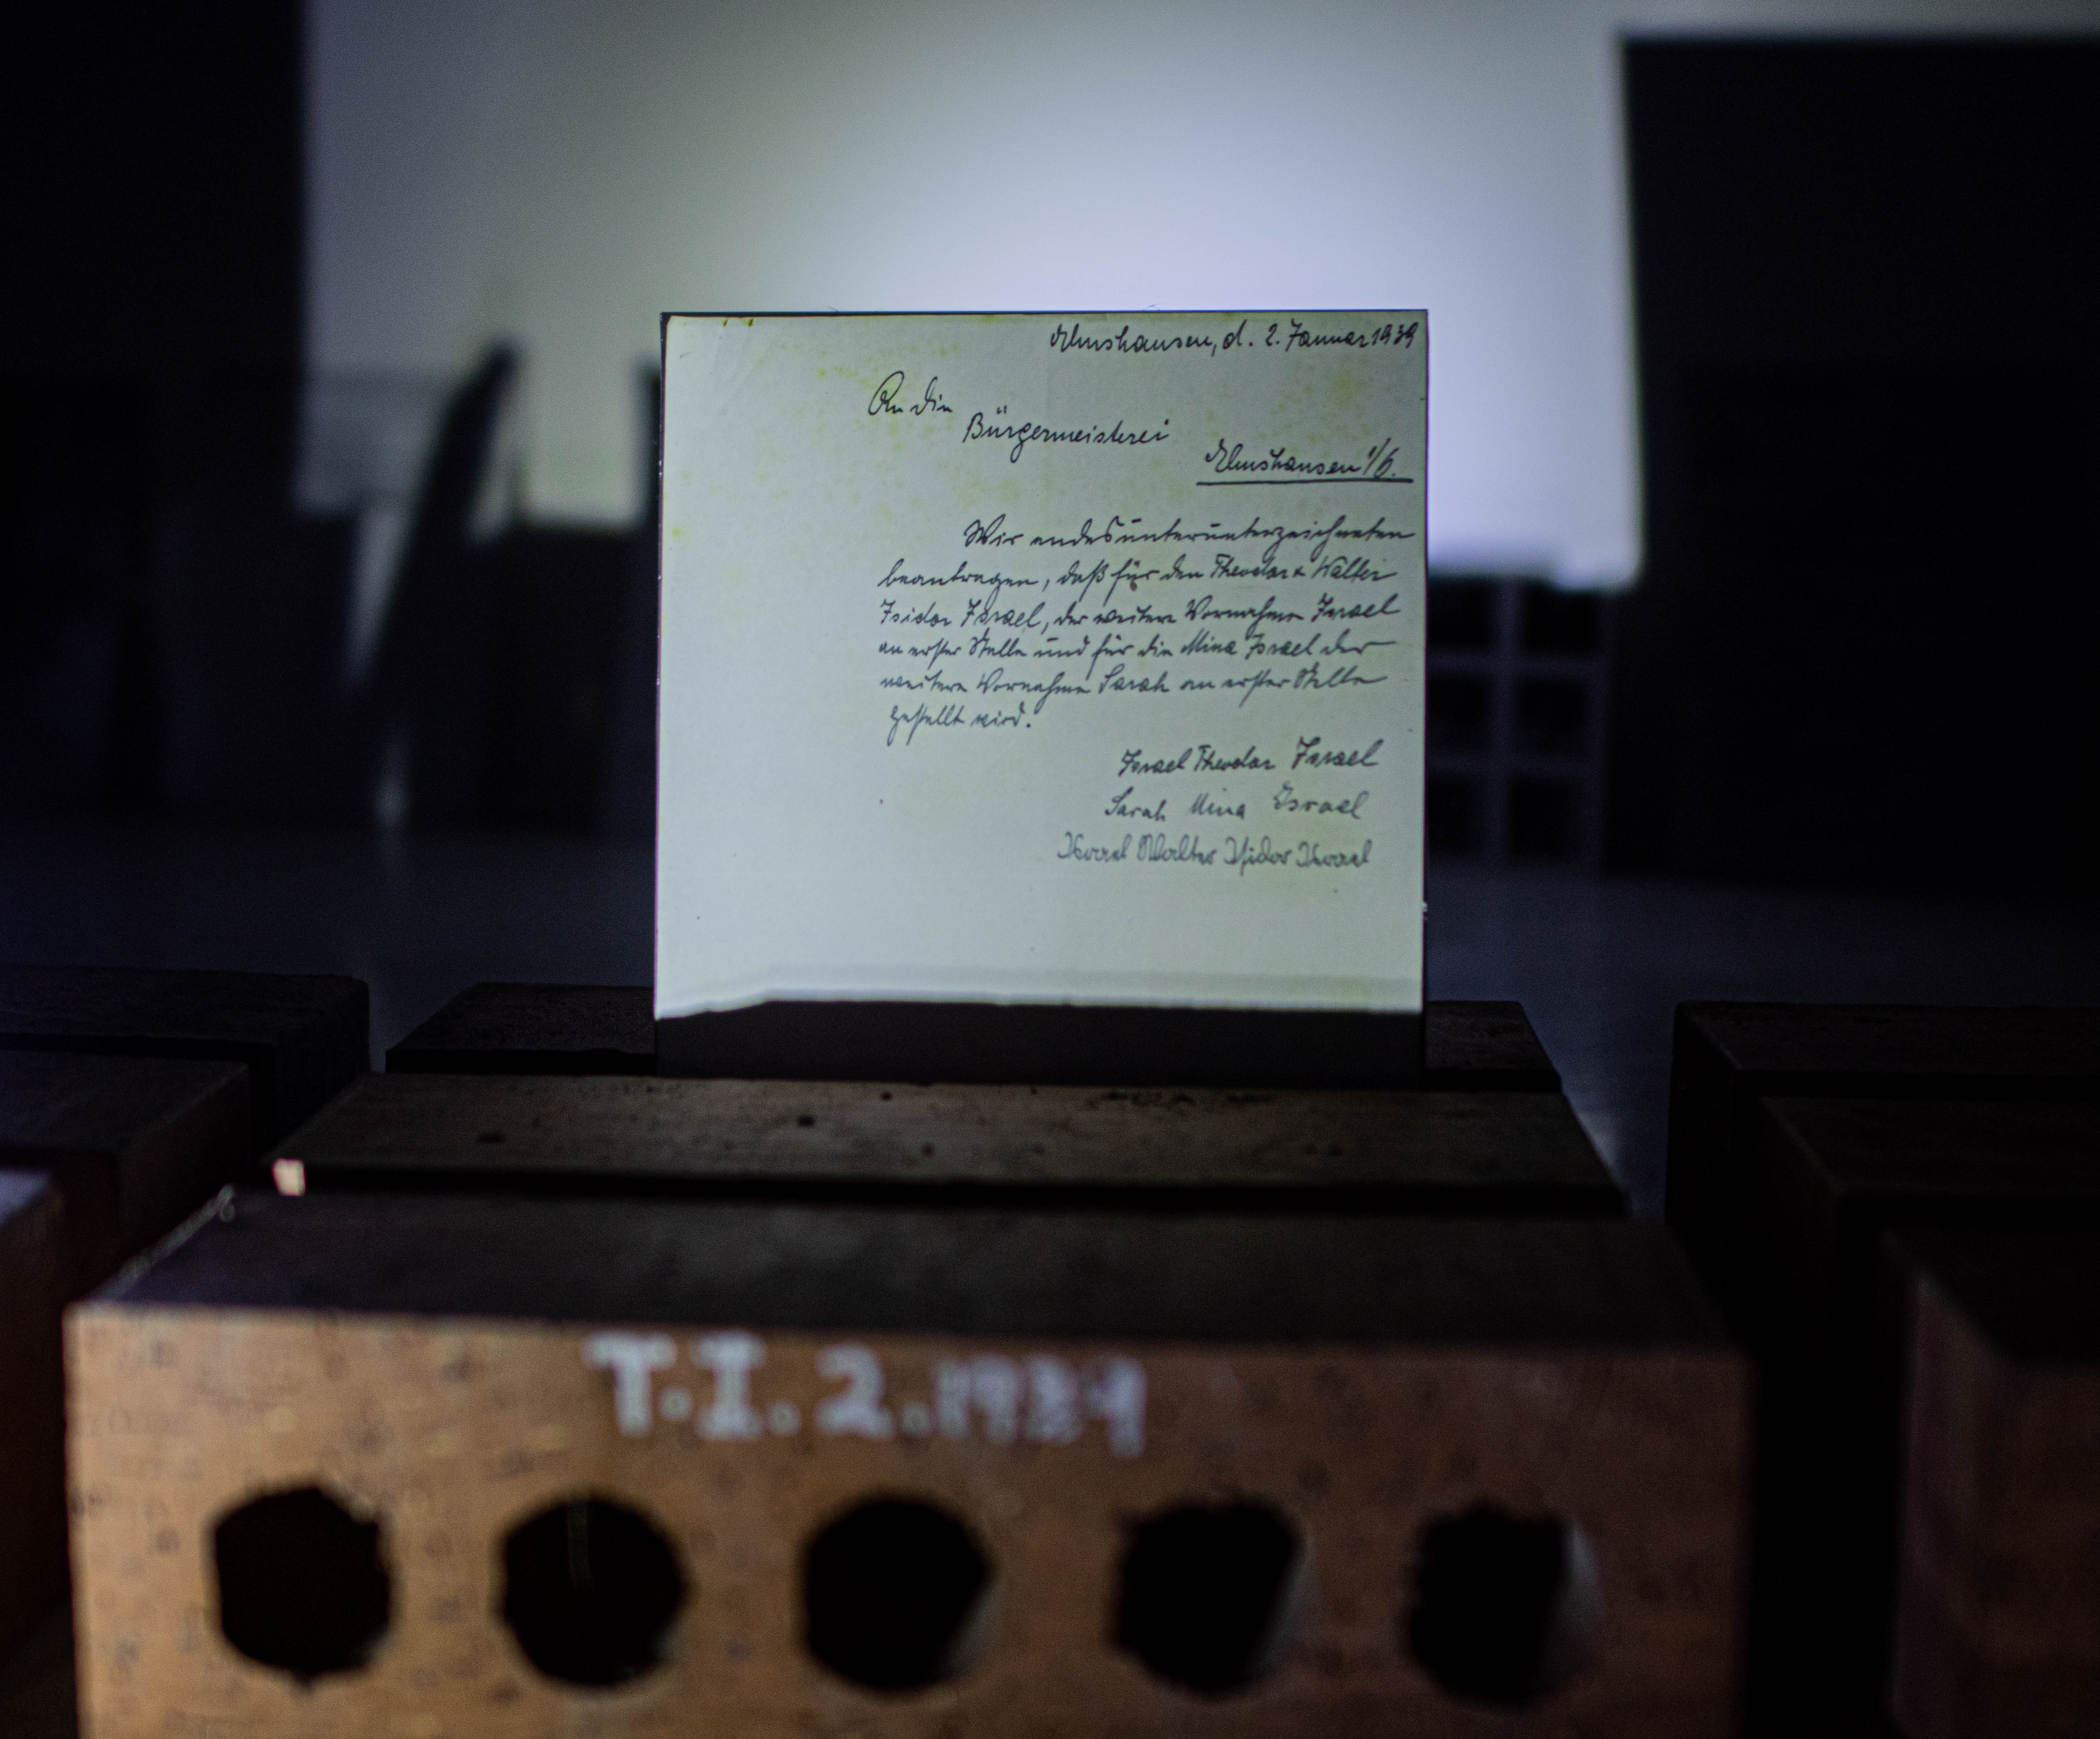 Elmshausen, d. 2. Januar 1939
An die
Bürgermeisterei
Elmshausen i/O.
Wir endesunterunterzeichneten
beantragen, daß für den Theodor & Walter
Isidor Israel, der weitere Vornahme Israel
an erster Stelle und für die Mina Israel der
weitere Vornahme Sarah an erster Stelle
gestellt wird.
Israel Theodor Israel
Sarah Mina Israel
Israel Walter Isidor Israel
T.I. 2.1939